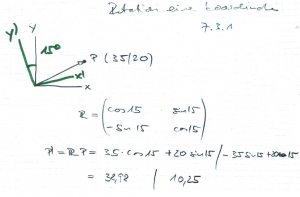 Rotation eine Koordinate
7.3.1
y'
y
15°
P (35/20)
x'
x
R = ( cos 15   sin 15
-sin 15   cos 15 )
P' = R P = 35 · cos 15 + 20 sin 15 / -35 sin 15 + 20 cos 15
= 38,98 / 10,25